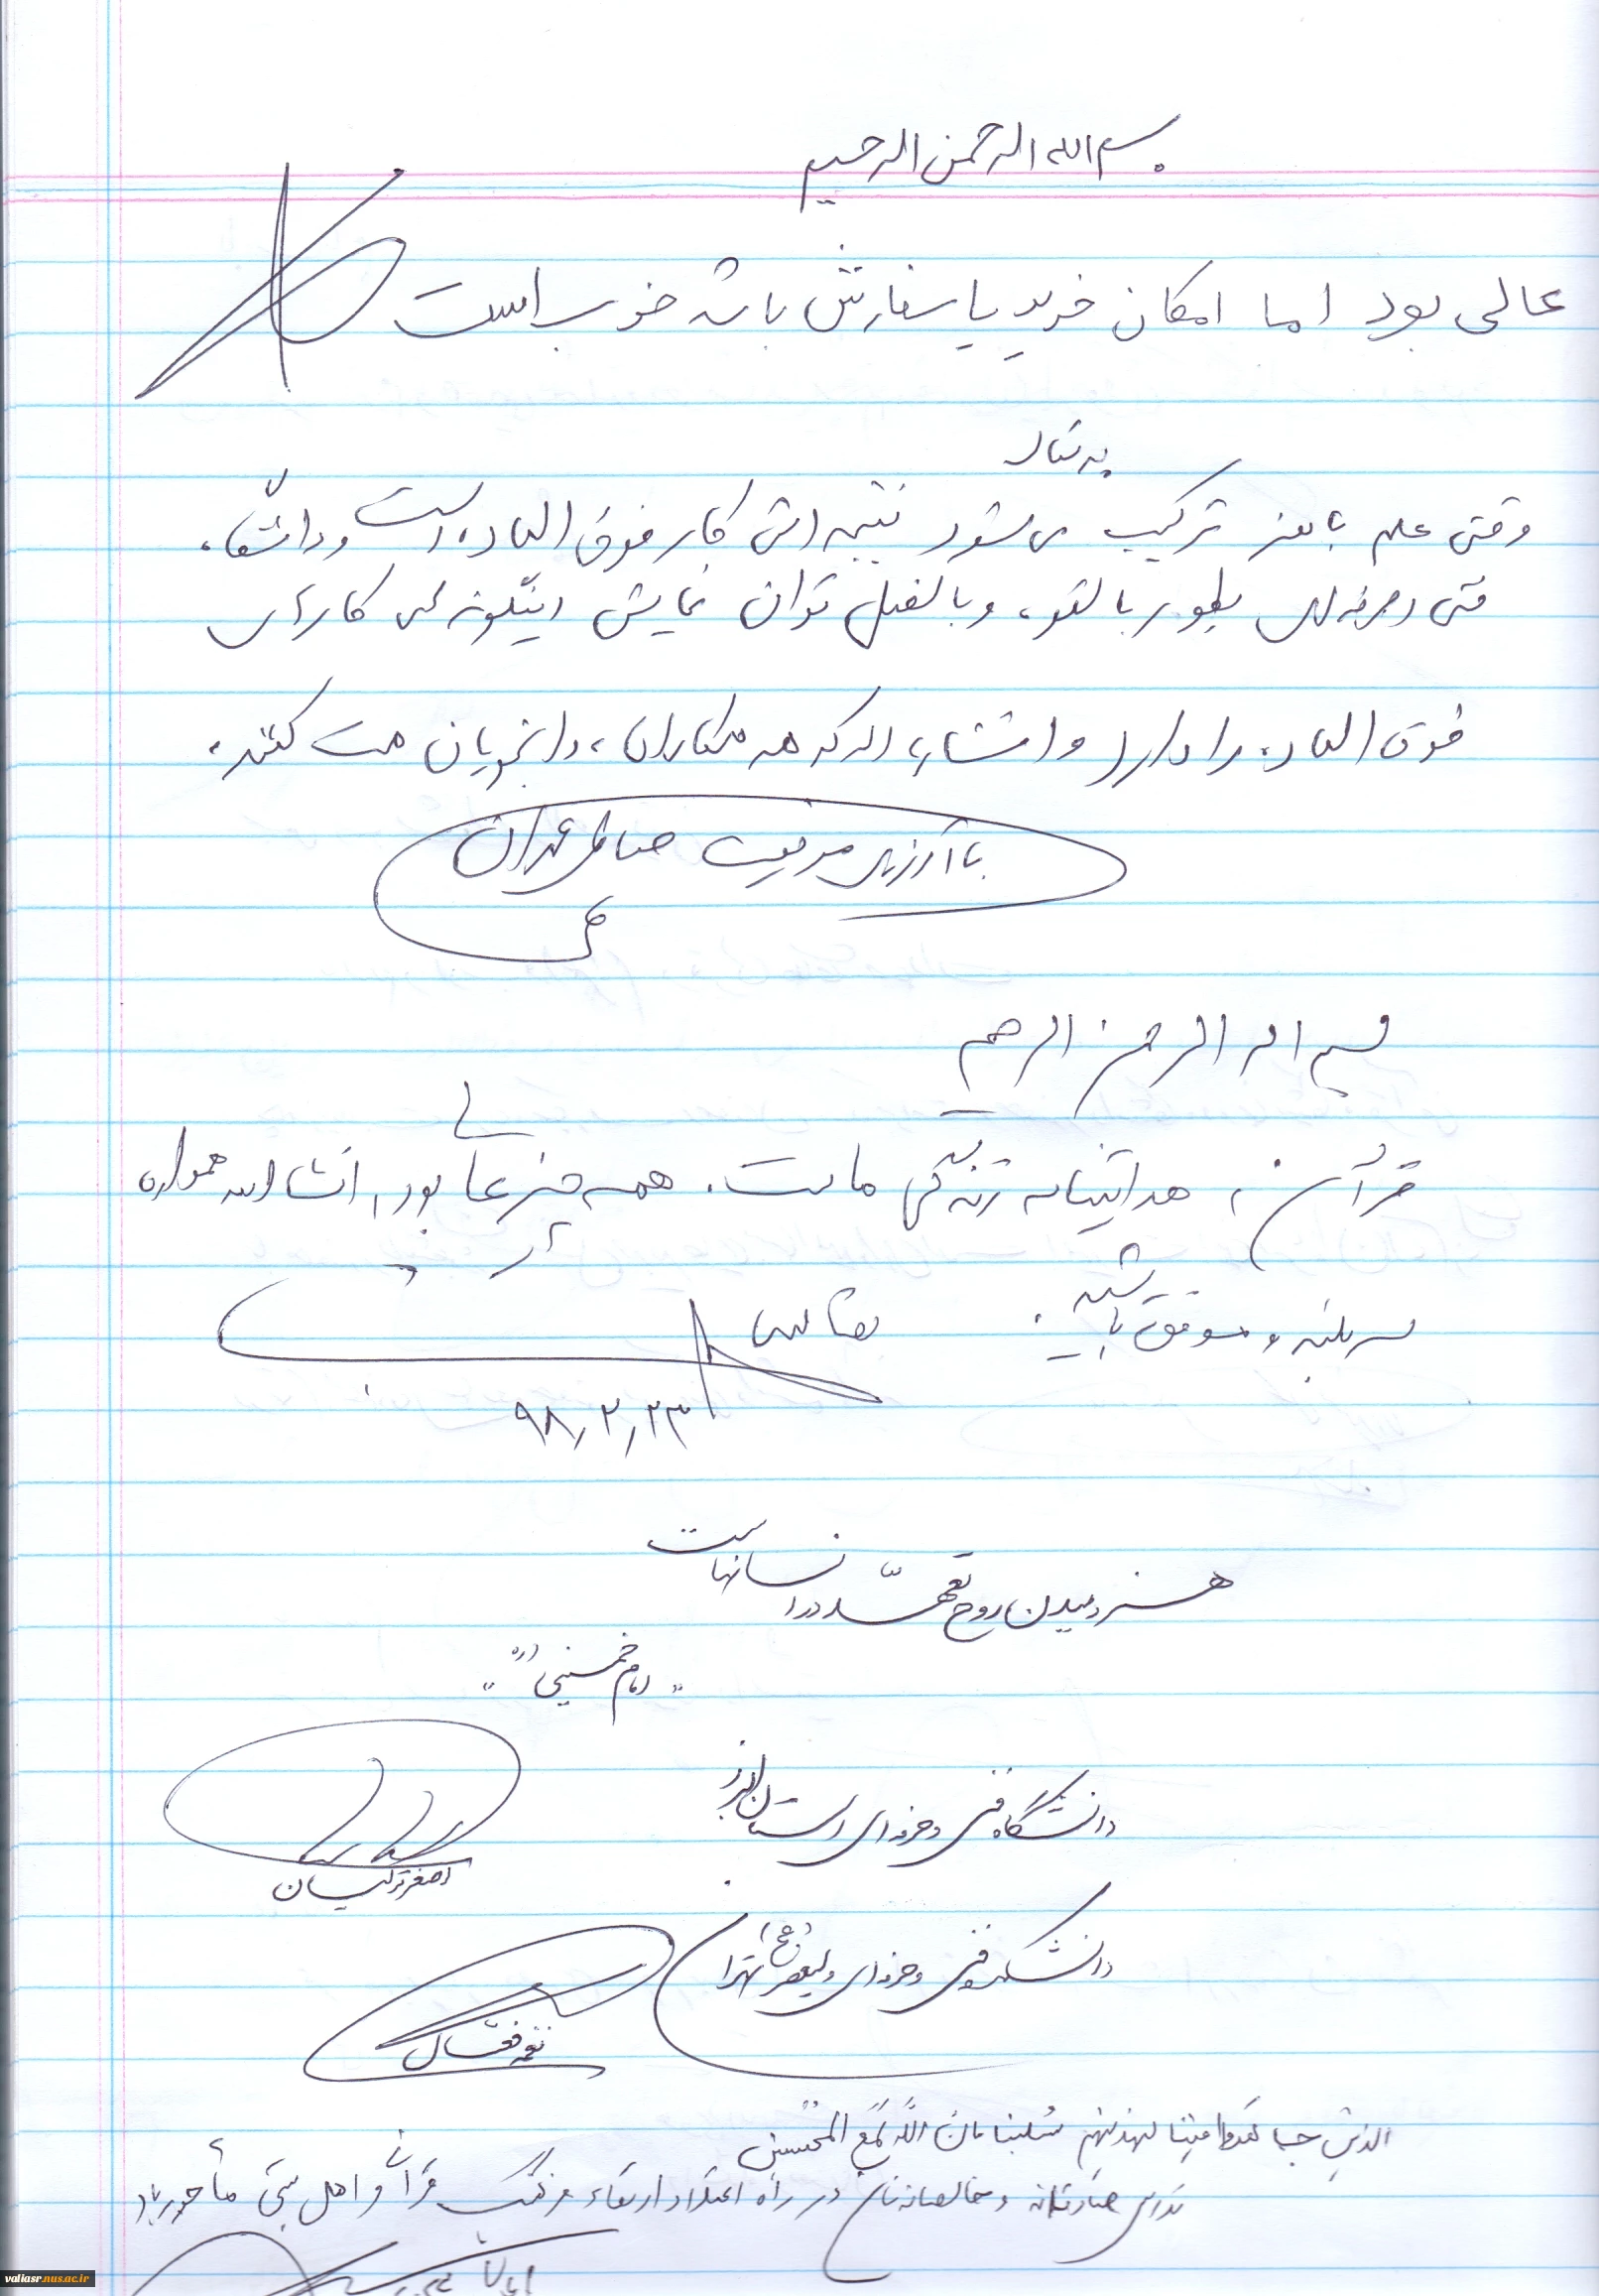 بسم الله الرحمن الرحیم
عالی بود اما امکان خرید یا سفارش باشد خوب است
وقتی علم با هنر ترکیب می شود نتیجه اش کار فوق العاده است و دانشگاه
فنی و حرفه ای بطور بالقوه و بالفعل توان نمایش اینگونه کارهای
فوق العاده را دارد و انشاءالله که همه همکاران و دانشجویان همت کنند.
با آرزوی موفقیت
بسم الله الرحمن الرحیم
قرآن، هدایتنامه زندگی ماست. همه چیز عالی بود، انشاالله همواره
سربلند و موفق باشید.
۹۸/۲/۲۳
هنر دمیدن روح تعهّد در انسانهاست
"امام خمینی (ره)"
دانشگاه فنی و حرفه ای استان البرز
اصغر ترکیان
دانشکده فنی و حرفه ای ولیعصر (عج) تهران
الذین جاهدوا فینا لنهدینهم سُبلنا و ان اللّه لمع المحسنین
تلاش صادقانه و خالصانه تان در راه اعتلا و ارتقاء فرهنگ قرآن و اهل بیتی مأجور باد
valiasr.nus.ac.ir